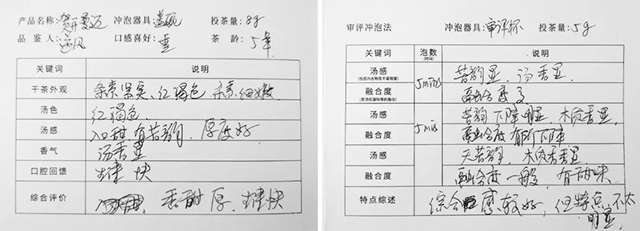 产品名称 景迈 冲泡器具 盖碗 投茶量: 8g
品鉴人: 口感喜好: 重 茶龄: 5年
关键词 说明
干茶外观 条索紧实、红褐色 条索细嫩
汤色 红褐色.
汤感 入口甜 有苦韵, 厚度好
香气 汤香显
口腔回馈 生津 快
综合评价 香甜 厚. 生津快
审评冲泡法 冲泡器具: 审评杯 投茶量: 5g
关键词 泡数时间 说明
汤感 5min 苦韵显, 汤香显.
融合度 融合度
汤感 5min 苦韵下降明显, 木质香显.
融合度 融合度有所下降
汤感 无苦韵, 木质香显
融合度 融合度一般, 有甜
特点综述 综合 度较好, 但特点不太明显